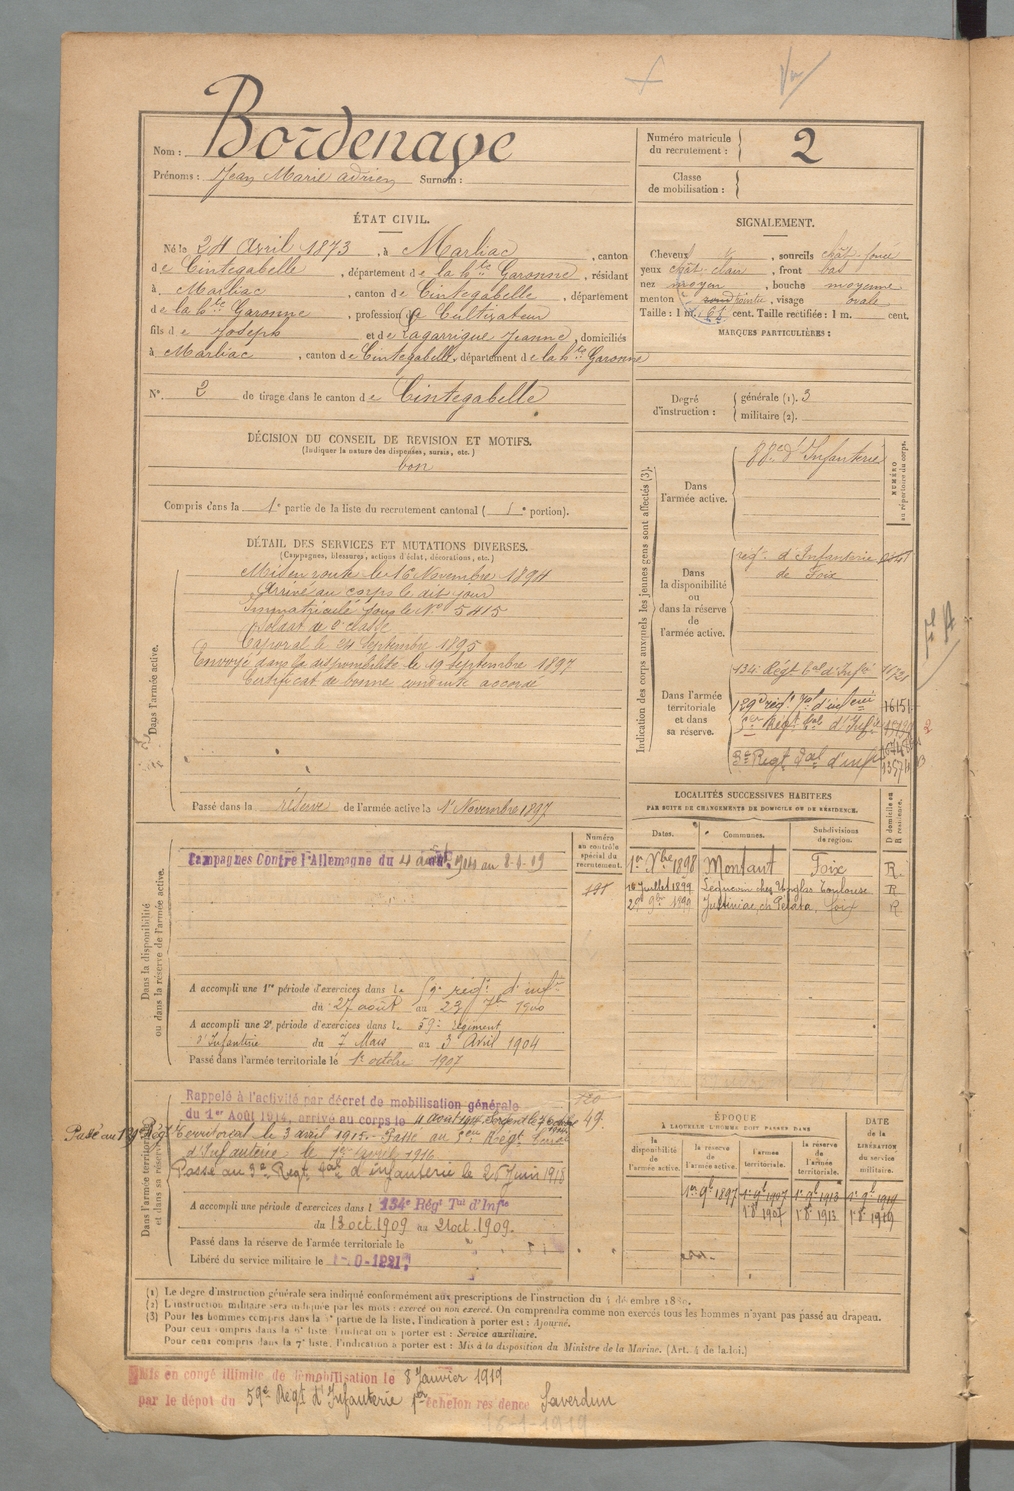 Nom : Bordenave
Prénoms : Jean Marie Adrien Surnom :
Numéro matricule du recrutement : 2
Classe de mobilisation :
ÉTAT CIVIL.
Né le 24 Avril 1873, à Marliac, canton
de Cintegabelle, département de la hte Garonne, résidant
à Marliac, canton de Cintegabelle, département
de la hte Garonne, profession de Cultivateur
fils de Joseph et de Lagarrigue Jeanne, domiciliés
à Marliac, canton de Cintegabelle, département de la hte Garonne
N° 2 de tirage dans le canton de Cintegabelle
SIGNALEMENT.
Cheveux, sourcils chât. foncé
yeux chât. clair, front bas
nez moyen, bouche moyenne
menton pointu, visage ovale
Taille : 1 m. 61 cent. Taille rectifiée : 1 m. cent.
MARQUES PARTICULIÈRES :
Degré d'instruction : générale (1). 3
militaire (2).
DÉCISION DU CONSEIL DE REVISION ET MOTIFS.
(Indiquer la nature des dispenses, sursis, etc.)
bon
Compris dans la 1e partie de la liste du recrutement cantonal ( 1e portion).
DÉTAIL DES SERVICES ET MUTATIONS DIVERSES.
(Campagnes, blessures, actions d'éclat, décorations, etc.)
Dans l'armée active.
Mis en route le 16 Novembre 1894
Arrivé au corps le dit jour
Immatriculé sous le N° 5415
Soldat de 2e classe
Caporal le 24 Septembre 1895
Envoyé dans la disponibilité le 19 Septembre 1897
Certificat de bonne conduite accordé
Passé dans la réserve de l'armée active le 1er Novembre 1897
Indication des corps auxquels les jeunes gens sont affectés (3).
NUMÉRO au répertoire du corps.
Dans l'armée active.
d'Infanterie
Dans la disponibilité ou dans la réserve de l'armée active.
régt. d'Infanterie
de Foix
Dans l'armée territoriale et dans sa réserve.
134e Régt tal d'Infie
129e régt tal d'infie 16151
5e Régt tal d'Infie
3e Régt tal d'infie
LOCALITÉS SUCCESSIVES HABITÉES
PAR SUITE DE CHANGEMENTS DE DOMICILE OU DE RÉSIDENCE.
Dates. Communes. Subdivisions de région. D domicile ou R résidence.
1er Xbre 1898 Montaut Foix R.
10 Juillet 1899 Léguevin chez Toulouse R
Foix R
Dans la disponibilité ou dans la réserve de l'armée active.
Numéro au contrôle spécial du recrutement.
Campagnes Contre l'Allemagne du 4 août 1914 au 8-1-19
A accompli une 1re période d'exercices dans le 59e régt d'inftie
du 27 août au 23 7bre 1900
A accompli une 2e période d'exercices dans le 59e Régiment
d'Infanterie du 7 Mars au 3 Avril 1904
Passé dans l'armée territoriale le 1er octobre 1907
Dans l'armée territoriale et dans sa réserve.
Rappelé à l'activité par décret de mobilisation générale
du 1er Août 1914, arrivé au corps le 4 août 1914 Sergent le
Passé au 129e Régt Territorial le 3 avril 1915. Passé au 5e Régt
d'Infanterie le avril 1916
Passé au 3e Régt tal d'infanterie le 26 Juin 1918
A accompli une période d'exercices dans l 134e Régt Tal d'Infie
du 13 oct. 1909 au 21 oct. 1909.
Passé dans la réserve de l'armée territoriale le
Libéré du service militaire le
49.
ÉPOQUE
A LAQUELLE L'HOMME DOIT PASSER DANS
la disponibilité de l'armée active.
la réserve de l'armée active.
l'armée territoriale.
la réserve de l'armée territoriale.
DATE de la LIBÉRATION du service militaire.
1er 9b 1897 1er 9b 1907 1er 9b 1913 1er 9b 1919
1er 8b 1907 1er 8b 1913 1er 8b 1919
(1) Le degré d'instruction générale sera indiqué conformément aux prescriptions de l'instruction du 4 décembre 1889.
(2) L'instruction militaire sera indiquée par les mots : exercé ou non exercé. On comprendra comme non exercés tous les hommes n'ayant pas passé au drapeau.
(3) Pour les hommes compris dans la partie de la liste, l'indication à porter est : Ajourné.
Pour ceux compris dans la liste l'indication à porter est : Service auxiliaire.
Pour ceux compris dans la 7e liste, l'indication à porter est : Mis à la disposition du Ministre de la Marine. (Art. 4 de la loi.)
Mis en congé illimité de démobilisation le 8 Janvier 1919
par le dépôt du 59e Régt d'Infanterie 1er échelon résidence Saverdun